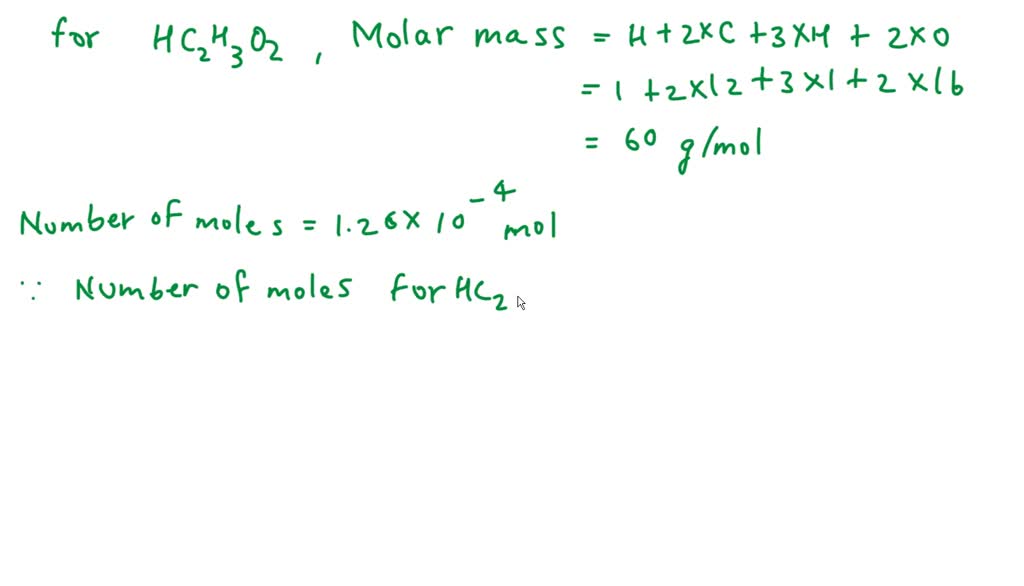 for HC₂H₃O₂, Molar mass = H + 2×C + 3×H + 2×O
= 1 + 2×12 + 3×1 + 2×16
= 60 g/mol
Number of moles = 1.26×10⁻⁴ mol
∵ Number of moles for HC₂